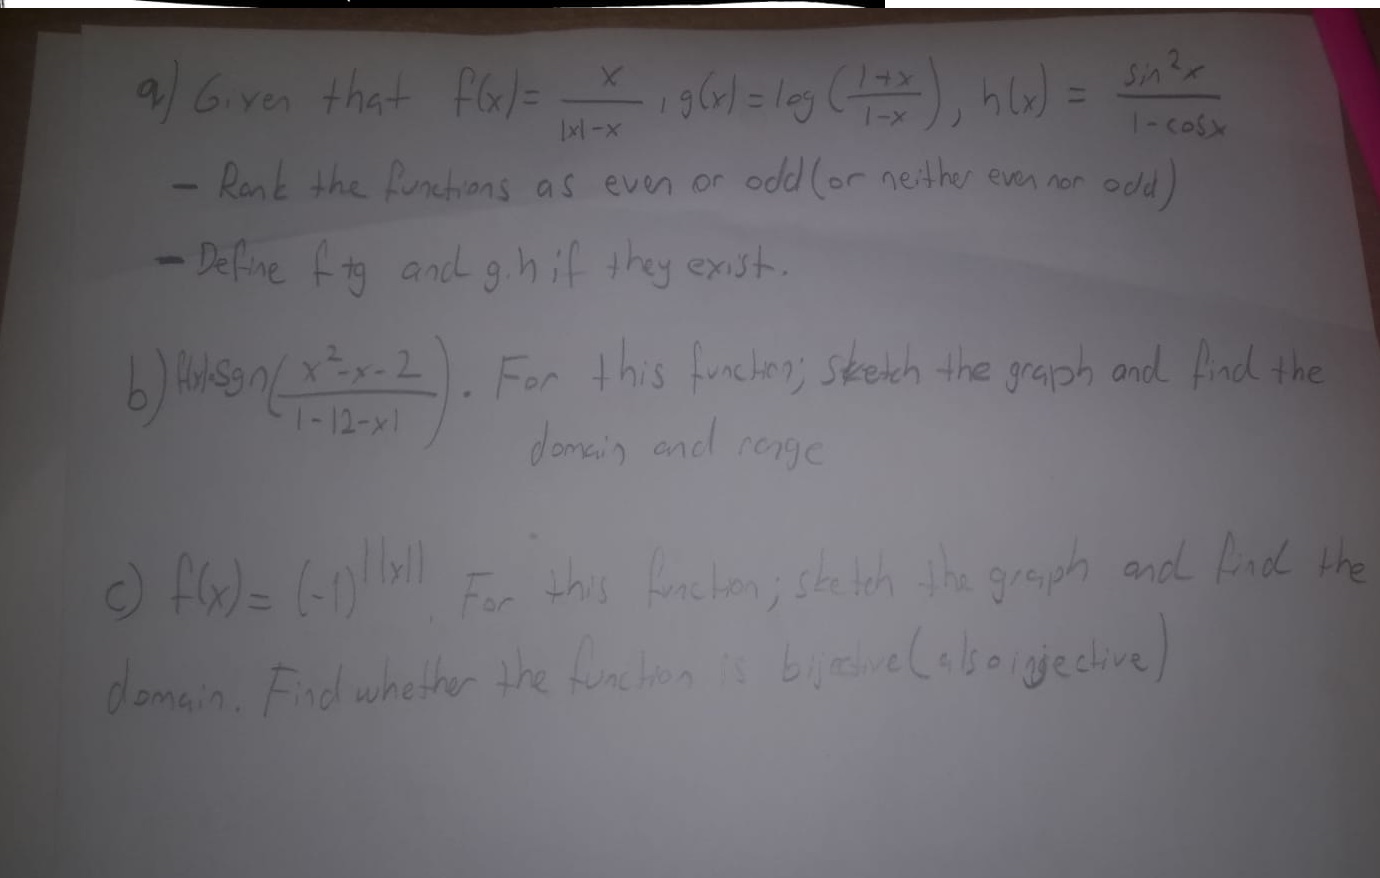 a) Given that f(x) = x/(|x|-x), g(x) = log((1+x)/(1-x)), h(x) = sin²x/(1-cosx)
- Rank the functions as even or odd (or neither even nor odd)
- Define f+g and g.h if they exist.
b) f(x)=Sgn((x²-x-2)/(1-|2-x|)). For this function; sketch the graph and find the
domain and range
c) f(x) = (-1)^||x||. For this function; sketch the graph and find the
domain. Find whether the function is bijective (also injective)